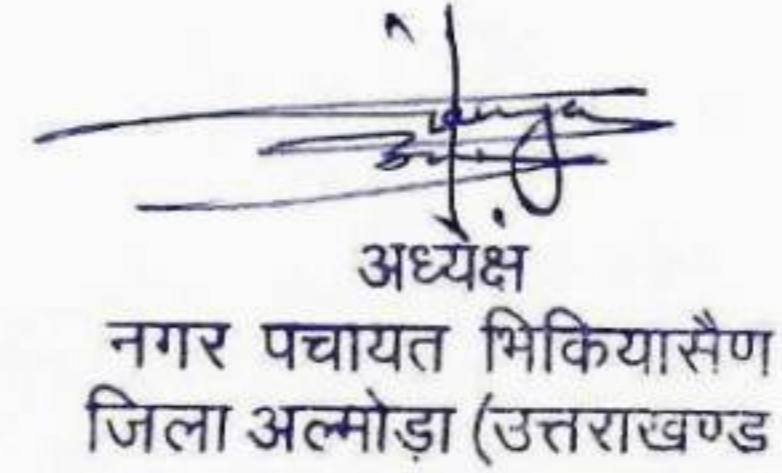 अध्यक्ष
नगर पचायत भिकियासैण
जिला अल्मोड़ा (उत्तराखण्ड